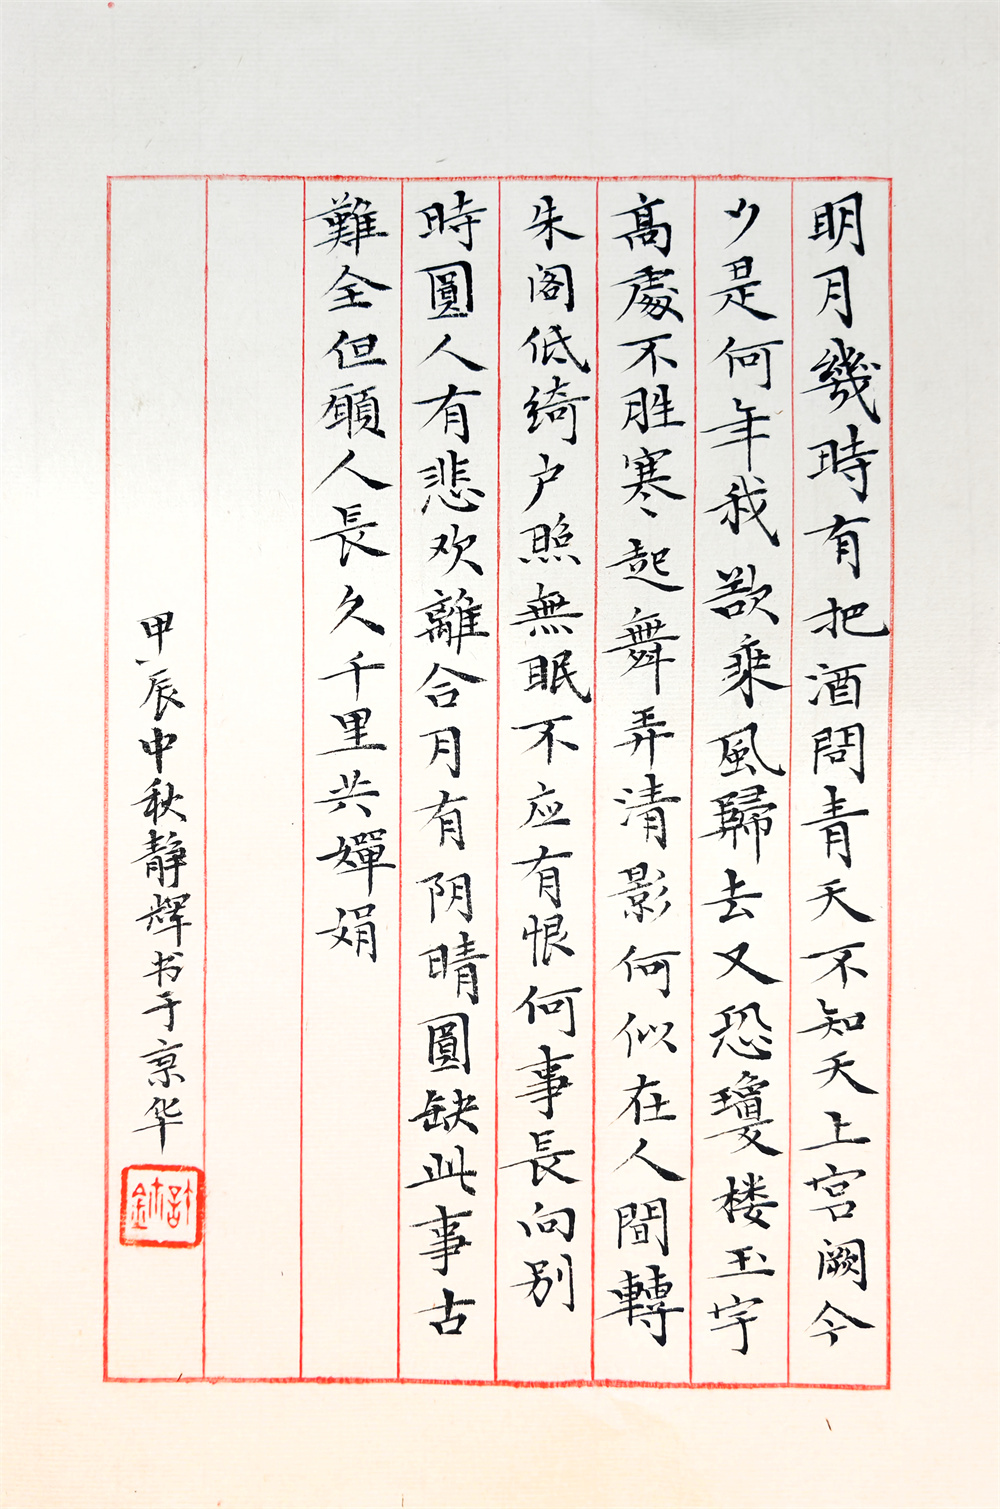 明月幾時有把酒問青天不知天上宫阙今
夕是何年我欲乘風歸去又恐瓊楼玉宇
高處不胜寒起舞弄清影何似在人間轉
朱阁低绮户照無眠不应有恨何事長向别
時圓人有悲欢離合月有阴晴圓缺此事古
難全但願人長久千里共嬋娟
甲辰中秋静辉书于京华